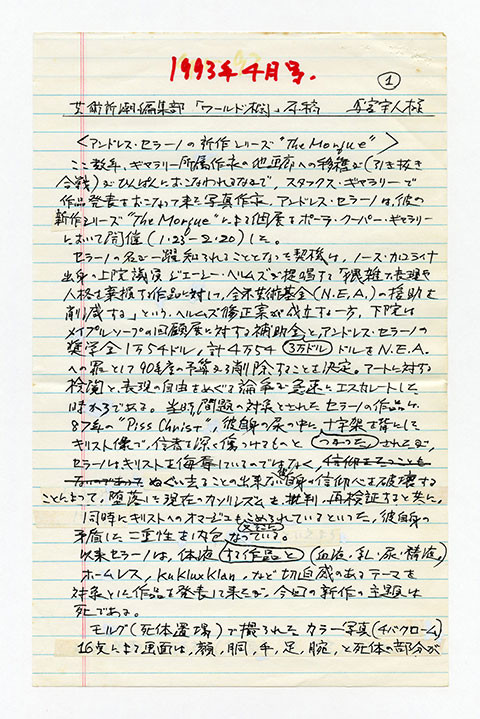 1993年4月号.
1
芸術新潮編集部「ワールド」欄 原稿
〈アンドレス・セラーノの新作シリーズ "The Morgue"〉
ここ数年、ギャラリー所属作家の他画廊への移籍が(引き抜き
合戦)がひんぱんにおこなわれるなかで、スタックス・ギャラリーで
作品発表をおこなって来た写真作家、アンドレス・セラーノは、彼の
新作シリーズ "The Morgue" による個展をポーラ・クーパー・ギャラリー
において開催 (1・23-2・20) した。
セラーノの名が一躍知られることとなった契機は、ノース・カロライナ
出身の上院議員 ジェシー・ヘルムズが提唱する「猥雑な表現や
人格を棄損する作品に対し、全米芸術基金(N.E.A.)の援助を
削減する」という、ヘルムズ修正案が成立する一方、下院は
メイプルソープの回顧展に対する補助金と、アンドレス・セラーノの
奨学金1万54ドル、計4万54 3万ドル ドルをN.E.A.
への罰として90年度の予算から削除することを決定。アートに対する
検閲と、表現の自由をめぐる論争が急速にエスカレートした
時からである。当時問題の対象とされたセラーノの作品は、
87年の "Piss Christ", 彼自身の尿の中に、十字架を背にした
キリスト像で、信者を深く傷つけるものと されたが、
セラーノはキリストを侮辱しているのではなく、信仰をたつことも
ぬぐい去ることの出来ない自身の信仰心を破壊する
ことによって、堕落した現在のカソリシズムを批判、再検証すると共に、
同時にキリストへのオマージュもこめられているといった、彼自身の
矛盾した二重性を内包 なっている。
以来セラーノは、体液 する作品と (血液、乳、尿、精液)
ホームレス、Ku Klux Klan, など切迫感のあるテーマを
対象とした作品を発表して来たが、今回の新作の主題は
死である。
モルグ(死体置場)で撮られたカラー写真(チバクローム)
16点による画面は、顔、胴、手、足、腕、と死体の部分が